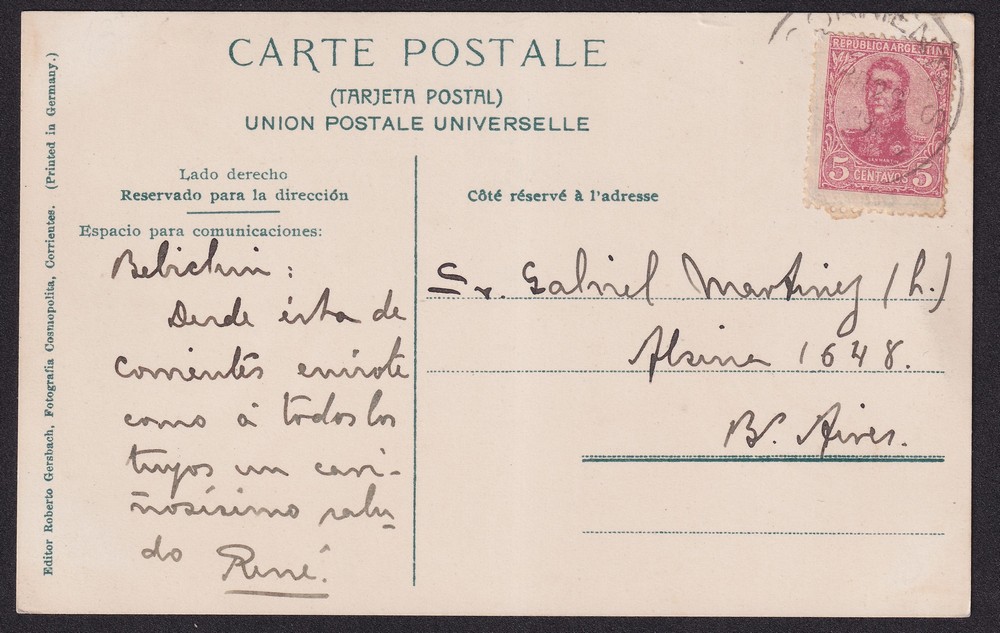 CARTE POSTALE
(TARJETA POSTAL)
UNION POSTALE UNIVERSELLE
Lado derecho
Reservado para la dirección
Espacio para comunicaciones:
Côté réservé à l'adresse
Editor Roberto Gersbach, Fotografía Cosmopolita, Corrientes. (Printed in Germany.)
REPÚBLICA ARGENTINA
SAN MARTIN
5 CENTAVOS 5
CORRIENTES
Bebichin:
Desde ésta de
Corrientes envíote
como á todos los
tuyos un cari-
ñosísimo salu-
do
René.
Sr. Gabriel Martinez (h.)
Alsina 1648.
Bs. Aires.